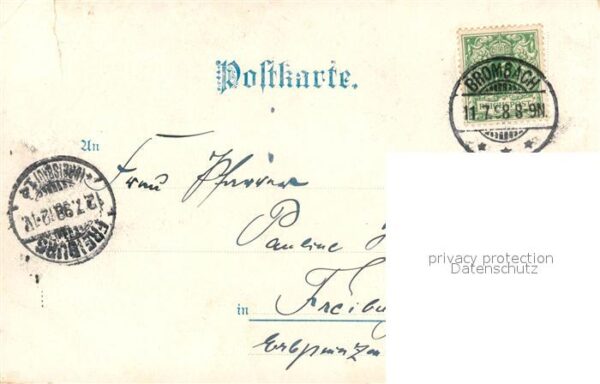 Postkarte.
BROMBACH
11.7.98 8-9N.
An
Frau Pfarrer
Pauline
FREIBURG
12.7.98.12-1V.
in Freibu
privacy protection
Datenschutz